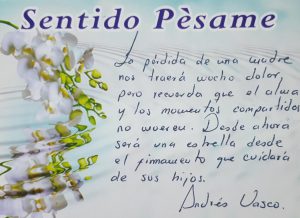 Sentido Pèsame
La pérdida de una madre
nos traerá mucho dolor,
pero recuerda que el alma
y los momentos compartidos
no mueren. Desde ahora
será una estrella desde
el firmamento que cuidará
de sus hijos.
Andrés Vasco.